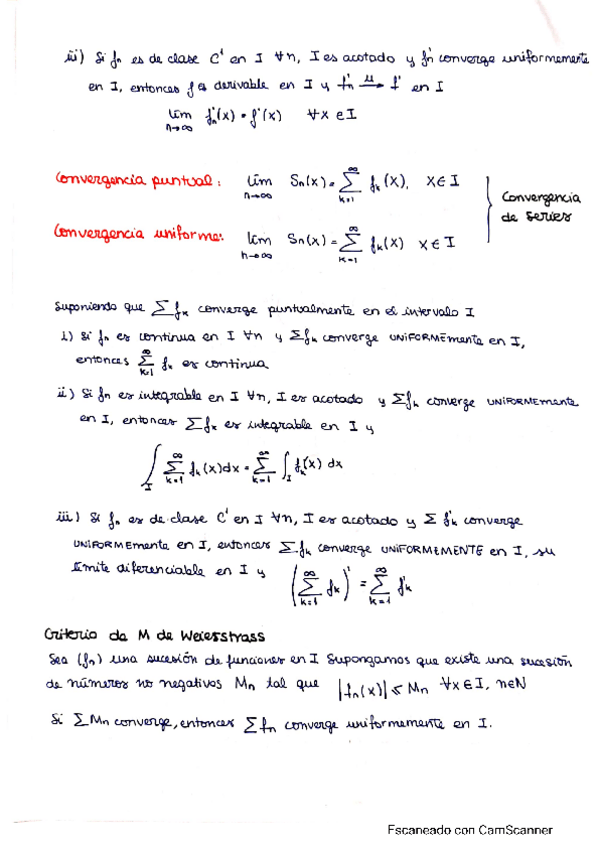 iii) Si fn es de clase C¹ en I ∀n, I es acotado y f'n converge uniformemente
en I, entonces f es derivable en I y f'n →ᵘ f' en I
lim n→∞ f'n(x) = f'(x) ∀x ∈ I
Convergencia puntual: lim n→∞ Sn(x) = ∑ k=1 ∞ fk(x), x ∈ I
Convergencia de series
Convergencia uniforme: lim n→∞ Sn(x) = ∑ k=1 ∞ fk(x) x ∈ I
Suponiendo que ∑fk converge puntualmente en el intervalo I
i) Si fn es continua en I ∀n y ∑fk converge UNIFORMEmente en I,
entonces ∑ k=1 ∞ fk es continua
ii) Si fn es integrable en I ∀n, I es acotado y ∑fk converge UNIFORMEmente
en I, entonces ∑fk es integrable en I y
∫I ∑ k=1 ∞ fk(x)dx = ∑ k=1 ∞ ∫I fk(x) dx
iii) Si fn es de clase C¹ en I ∀n, I es acotado y ∑ f'k converge
UNIFORMEmente en I, entonces ∑fk converge UNIFORMEMENTE en I, su
límite diferenciable en I y (∑ k=1 ∞ fk)' = ∑ k=1 ∞ f'k
Criterio da M de Weierstrass
Sea (fn) una sucesión de funciones en I Supongamos que existe una sucesión
de números no negativos Mn tal que |fn(x)| ≤ Mn ∀x ∈ I, n∈N
Si ∑Mn converge, entonces ∑fn converge uniformemente en I.
Escaneado con CamScanner